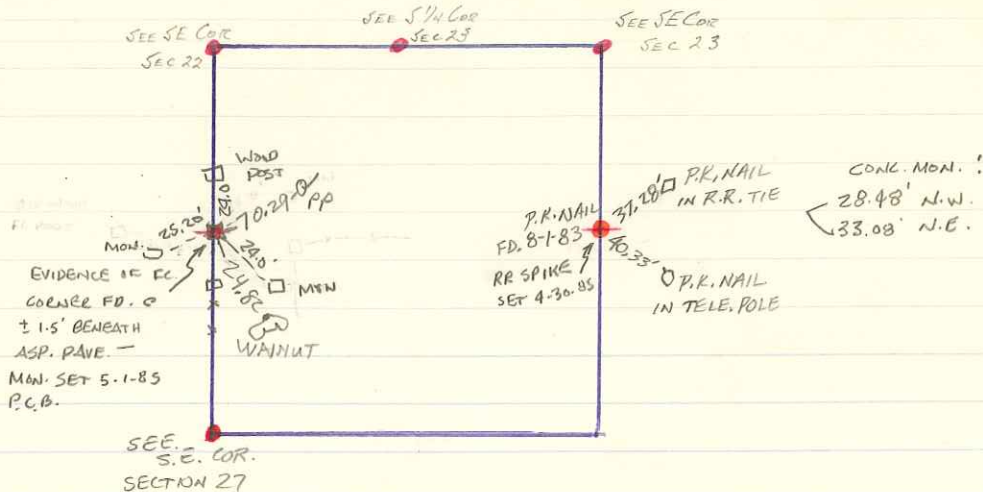 SEE SE COR
SEC 22
SEE S 1/4 COR
SEC 23
SEE SE COR
SEC 23
WOOD
POST
25.20'
70.29
PP
24.0'
24.82
MON.
MON
WALNUT
EVIDENCE OF FC.
CORNER FD. @
± 1.5' BENEATH
ASP. PAVE. —
MON. SET 5-1-85
P.C.B.
P.K. NAIL
FD. 8-1-83
RR SPIKE
SET 4-30-85
37.28'
P.K. NAIL
IN R.R. TIE
40.33'
P.K. NAIL
IN TELE. POLE
CONC. MON.
28.48' N.W.
33.08' N.E.
SEE
S.E. COR.
SECTION 27